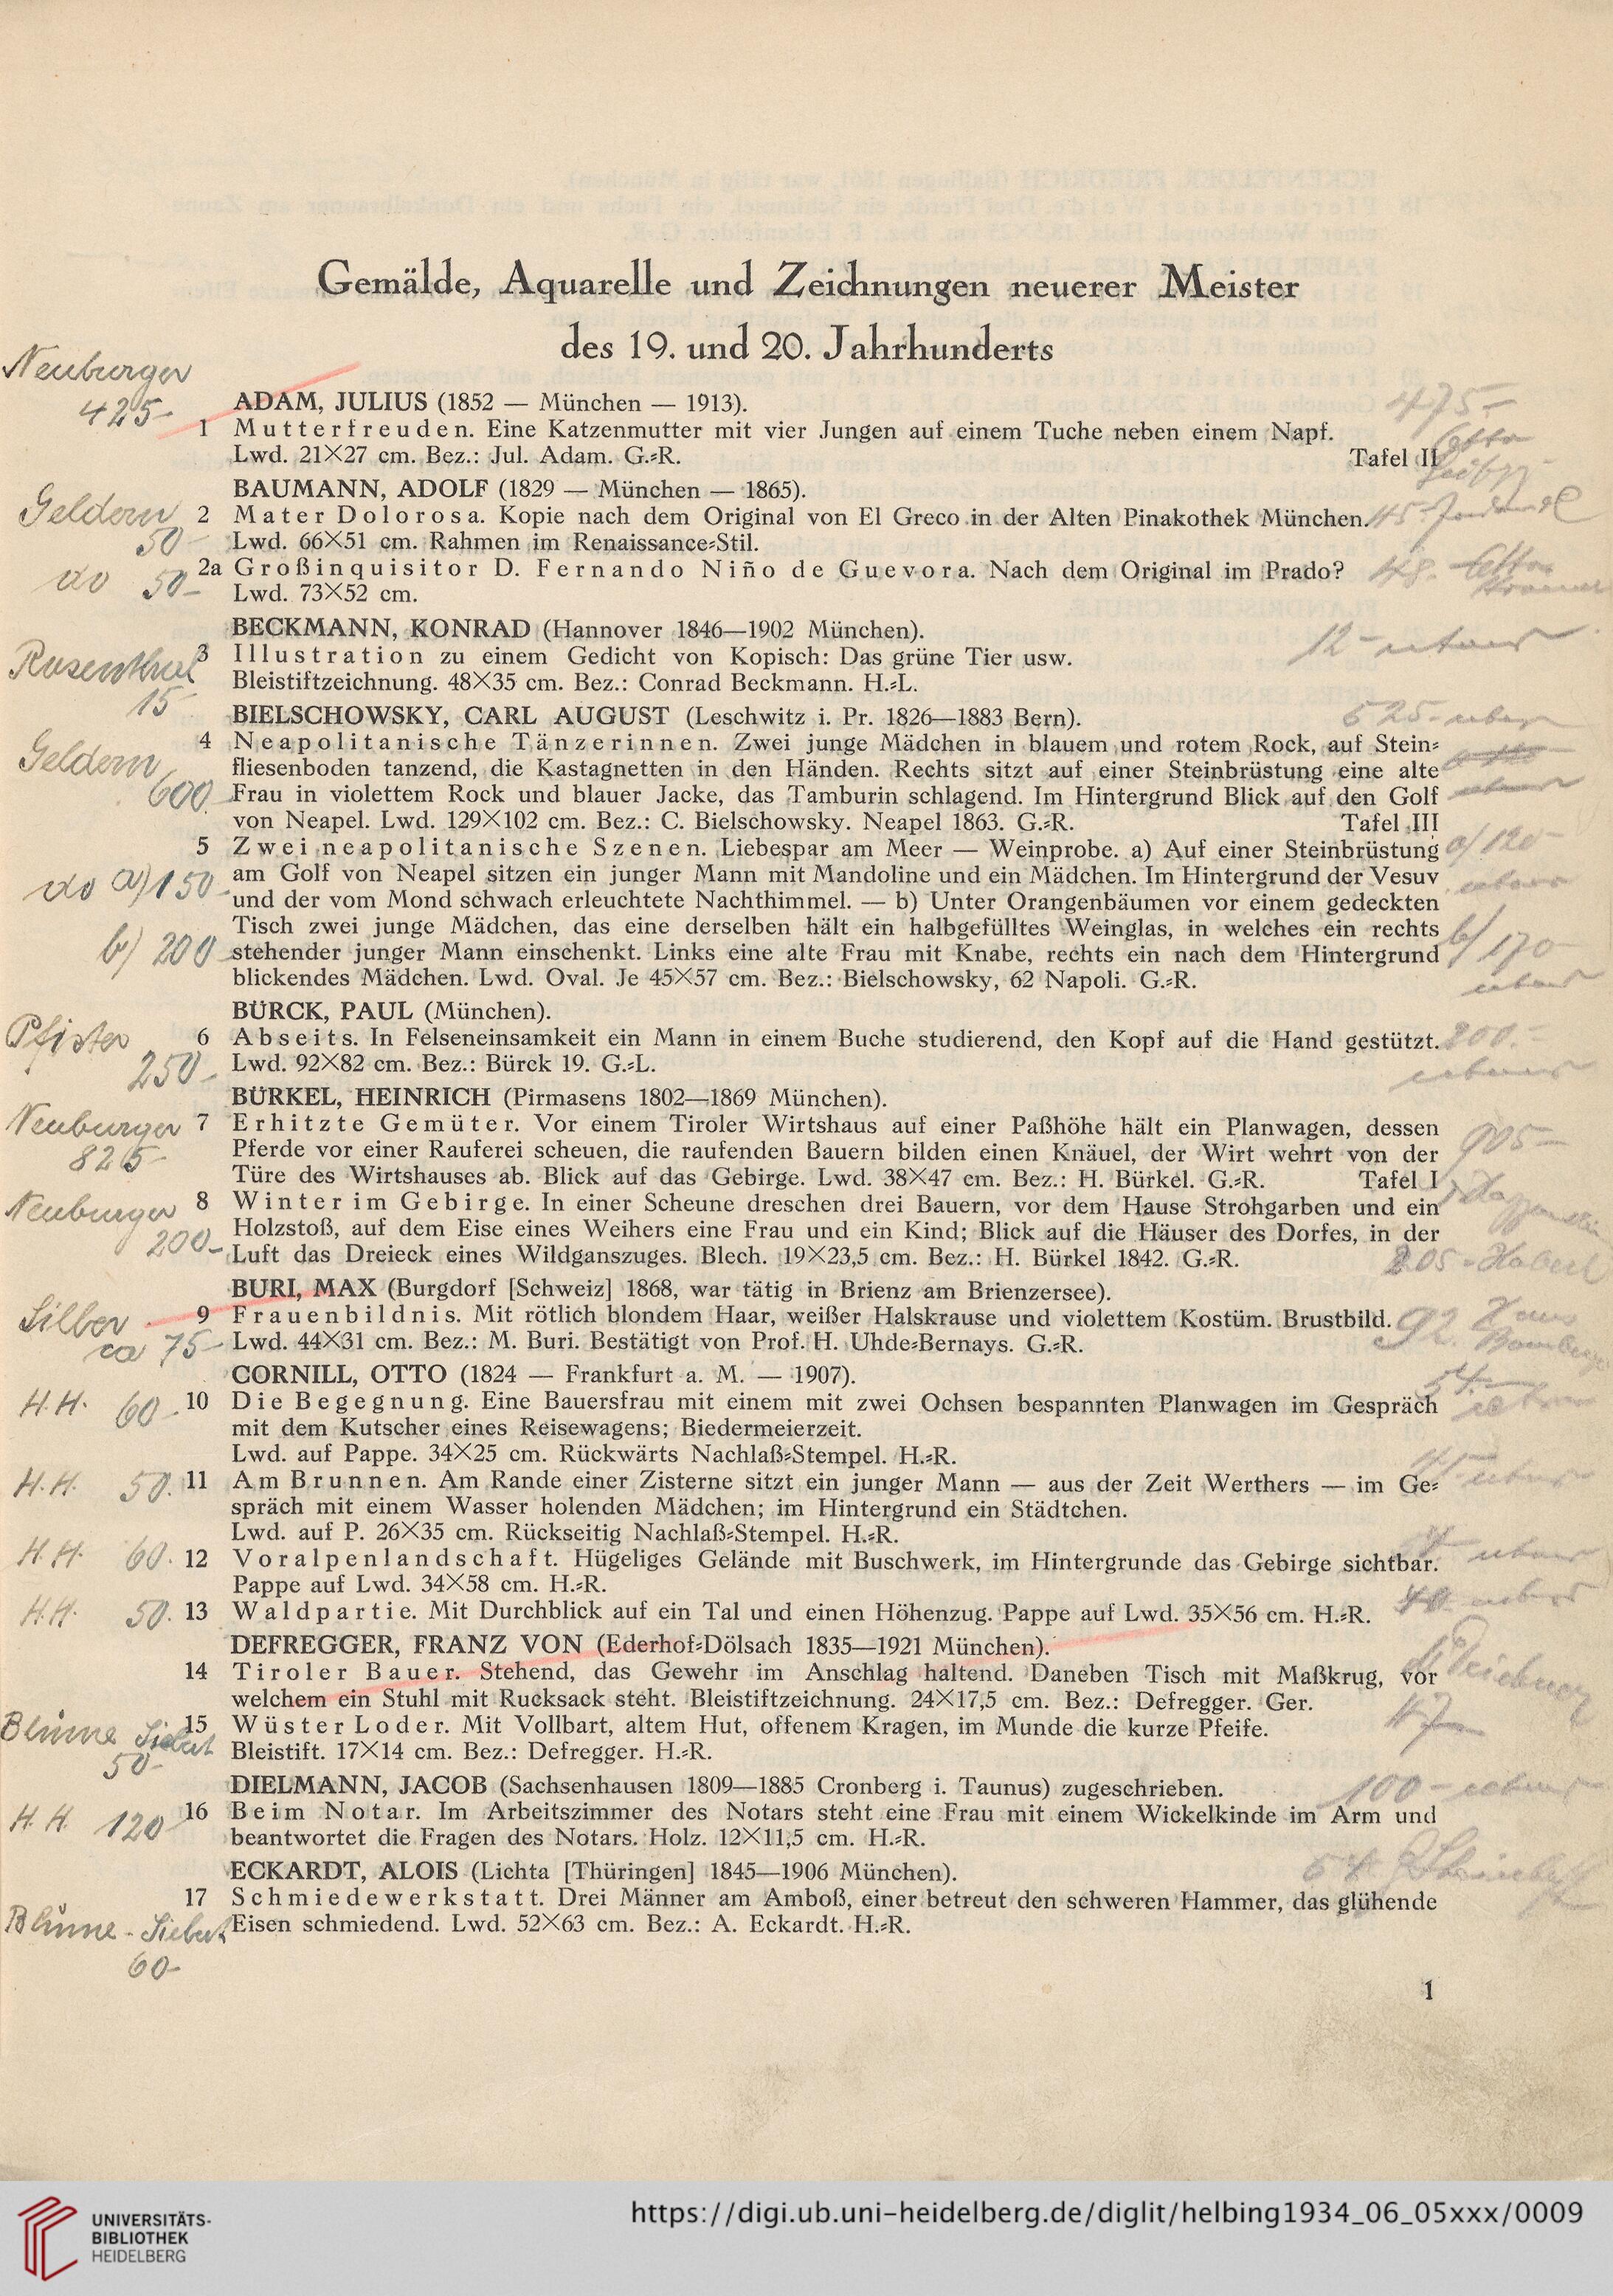 Gemälde, Aquarelle und Zeichnungen neuerer Meister
des 19. und 20. Jahrhunderts
Neuburger
425-
475-
ADAM, JULIUS (1852 — München — 1913).
1 Mutterfreuden. Eine Katzenmutter mit vier Jungen auf einem Tuche neben einem Napf.
Lwd. 21×27 cm. Bez.: Jul. Adam. G.=R. Tafel II
BAUMANN, ADOLF (1829 — München — 1865).
Geldern
50
2 Mater Dolorosa. Kopie nach dem Original von El Greco in der Alten Pinakothek München.
Lwd. 66×51 cm. Rahmen im Renaissance=Stil.
do 50-
2a Großinquisitor D. Fernando Niño de Guevora. Nach dem Original im Prado?
Lwd. 73×52 cm.
BECKMANN, KONRAD (Hannover 1846—1902 München).
12-
Rosenthal
15-
3 Illustration zu einem Gedicht von Kopisch: Das grüne Tier usw.
Bleistiftzeichnung. 48×35 cm. Bez.: Conrad Beckmann. H.=L.
BIELSCHOWSKY, CARL AUGUST (Leschwitz i. Pr. 1826—1883 Bern).
525-
Geldern
600
4 Neapolitanische Tänzerinnen. Zwei junge Mädchen in blauem und rotem Rock, auf Stein=
fliesenboden tanzend, die Kastagnetten in den Händen. Rechts sitzt auf einer Steinbrüstung eine alte
Frau in violettem Rock und blauer Jacke, das Tamburin schlagend. Im Hintergrund Blick auf den Golf
von Neapel. Lwd. 129×102 cm. Bez.: C. Bielschowsky. Neapel 1863. G.=R. Tafel III
5 Zwei neapolitanische Szenen. Liebespar am Meer — Weinprobe. a) Auf einer Steinbrüstung
a) 120-
do a) 150
am Golf von Neapel sitzen ein junger Mann mit Mandoline und ein Mädchen. Im Hintergrund der Vesuv
und der vom Mond schwach erleuchtete Nachthimmel. — b) Unter Orangenbäumen vor einem gedeckten
Tisch zwei junge Mädchen, das eine derselben hält ein halbgefülltes Weinglas, in welches ein rechts
b) 200
b) 170-
stehender junger Mann einschenkt. Links eine alte Frau mit Knabe, rechts ein nach dem Hintergrund
blickendes Mädchen. Lwd. Oval. Je 45×57 cm. Bez.: Bielschowsky, 62 Napoli. G.=R.
BÜRCK, PAUL (München).
Pfister
250-
6 Abseits. In Felseneinsamkeit ein Mann in einem Buche studierend, den Kopf auf die Hand gestützt.
200.-
Lwd. 92×82 cm. Bez.: Bürck 19. G.=L.
BÜRKEL, HEINRICH (Pirmasens 1802—1869 München).
Neuburger
825-
7 Erhitzte Gemüter. Vor einem Tiroler Wirtshaus auf einer Paßhöhe hält ein Planwagen, dessen
905-
Pferde vor einer Rauferei scheuen, die raufenden Bauern bilden einen Knäuel, der Wirt wehrt von der
Türe des Wirtshauses ab. Blick auf das Gebirge. Lwd. 38×47 cm. Bez.: H. Bürkel. G.=R. Tafel I
Neuburger
200-
8 Winter im Gebirge. In einer Scheune dreschen drei Bauern, vor dem Hause Strohgarben und ein
Holzstoß, auf dem Eise eines Weihers eine Frau und ein Kind; Blick auf die Häuser des Dorfes, in der
Luft das Dreieck eines Wildganszuges. Blech. 19×23,5 cm. Bez.: H. Bürkel 1842. G.=R.
205-
BURI, MAX (Burgdorf [Schweiz] 1868, war tätig in Brienz am Brienzersee).
Silber
ca 75-
9 Frauenbildnis. Mit rötlich blondem Haar, weißer Halskrause und violettem Kostüm. Brustbild.
92.
Lwd. 44×31 cm. Bez.: M. Buri. Bestätigt von Prof. H. Uhde=Bernays. G.=R.
CORNILL, OTTO (1824 — Frankfurt a. M. — 1907).
54.-
H. H. 60-
10 Die Begegnung. Eine Bauersfrau mit einem mit zwei Ochsen bespannten Planwagen im Gespräch
mit dem Kutscher eines Reisewagens; Biedermeierzeit.
Lwd. auf Pappe. 34×25 cm. Rückwärts Nachlaß=Stempel. H.=R.
H. H. 50.
11 Am Brunnen. Am Rande einer Zisterne sitzt ein junger Mann — aus der Zeit Werthers — im Ge=
spräch mit einem Wasser holenden Mädchen; im Hintergrund ein Städtchen.
Lwd. auf P. 26×35 cm. Rückseitig Nachlaß=Stempel. H.=R.
H. H. 60.
12 Voralpenlandschaft. Hügeliges Gelände mit Buschwerk, im Hintergrunde das Gebirge sichtbar.
Pappe auf Lwd. 34×58 cm. H.=R.
H. H. 50.
13 Waldpartie. Mit Durchblick auf ein Tal und einen Höhenzug. Pappe auf Lwd. 35×56 cm. H.=R.
DEFREGGER, FRANZ VON (Ederhof=Dölsach 1835—1921 München).
14 Tiroler Bauer. Stehend, das Gewehr im Anschlag haltend. Daneben Tisch mit Maßkrug, vor
welchem ein Stuhl mit Rucksack steht. Bleistiftzeichnung. 24×17,5 cm. Bez.: Defregger. Ger.
Blüme Siebert
50-
15 Wüster Loder. Mit Vollbart, altem Hut, offenem Kragen, im Munde die kurze Pfeife.
Bleistift. 17×14 cm. Bez.: Defregger. H.=R.
DIELMANN, JACOB (Sachsenhausen 1809—1885 Cronberg i. Taunus) zugeschrieben.
100-
H. H. 120
16 Beim Notar. Im Arbeitszimmer des Notars steht eine Frau mit einem Wickelkinde im Arm und
beantwortet die Fragen des Notars. Holz. 12×11,5 cm. H.=R.
ECKARDT, ALOIS (Lichta [Thüringen] 1845—1906 München).
17 Schmiedewerkstatt. Drei Männer am Amboß, einer betreut den schweren Hammer, das glühende
Blüme - Siebert
60-
Eisen schmiedend. Lwd. 52×63 cm. Bez.: A. Eckardt. H.=R.
1
UNIVERSITÄTS-
BIBLIOTHEK
HEIDELBERG
https://digi.ub.uni-heidelberg.de/diglit/helbing1934_06_05xxx/0009